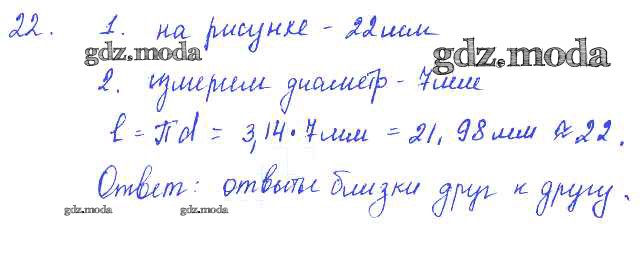 22. 1. на рисунке - 22мм
gdz.moda gdz.moda
2. измерим диаметр - 7мм
l = πd = 3,14 · 7мм = 21,98мм ≈ 22.
Ответ: ответы близки друг к другу.
gdz.moda gdz.moda